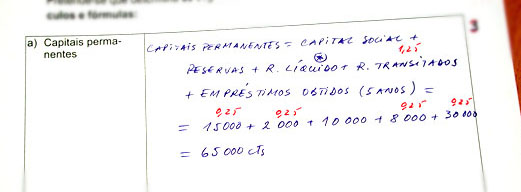 culos e fórmulas:
3
a) Capitais perma-
nentes
CAPITAIS PERMANENTES = CAPITAL SOCIAL +
1,25
RESERVAS + R. LÍQUIDO + R. TRANSITADOS
+ EMPRÉSTIMOS OBTIDOS (5 ANOS) =
0,25 0,25 0,25 0,25
= 15000 + 2 000 + 10 000 + 8 000 + 30 000
= 65 000 cts